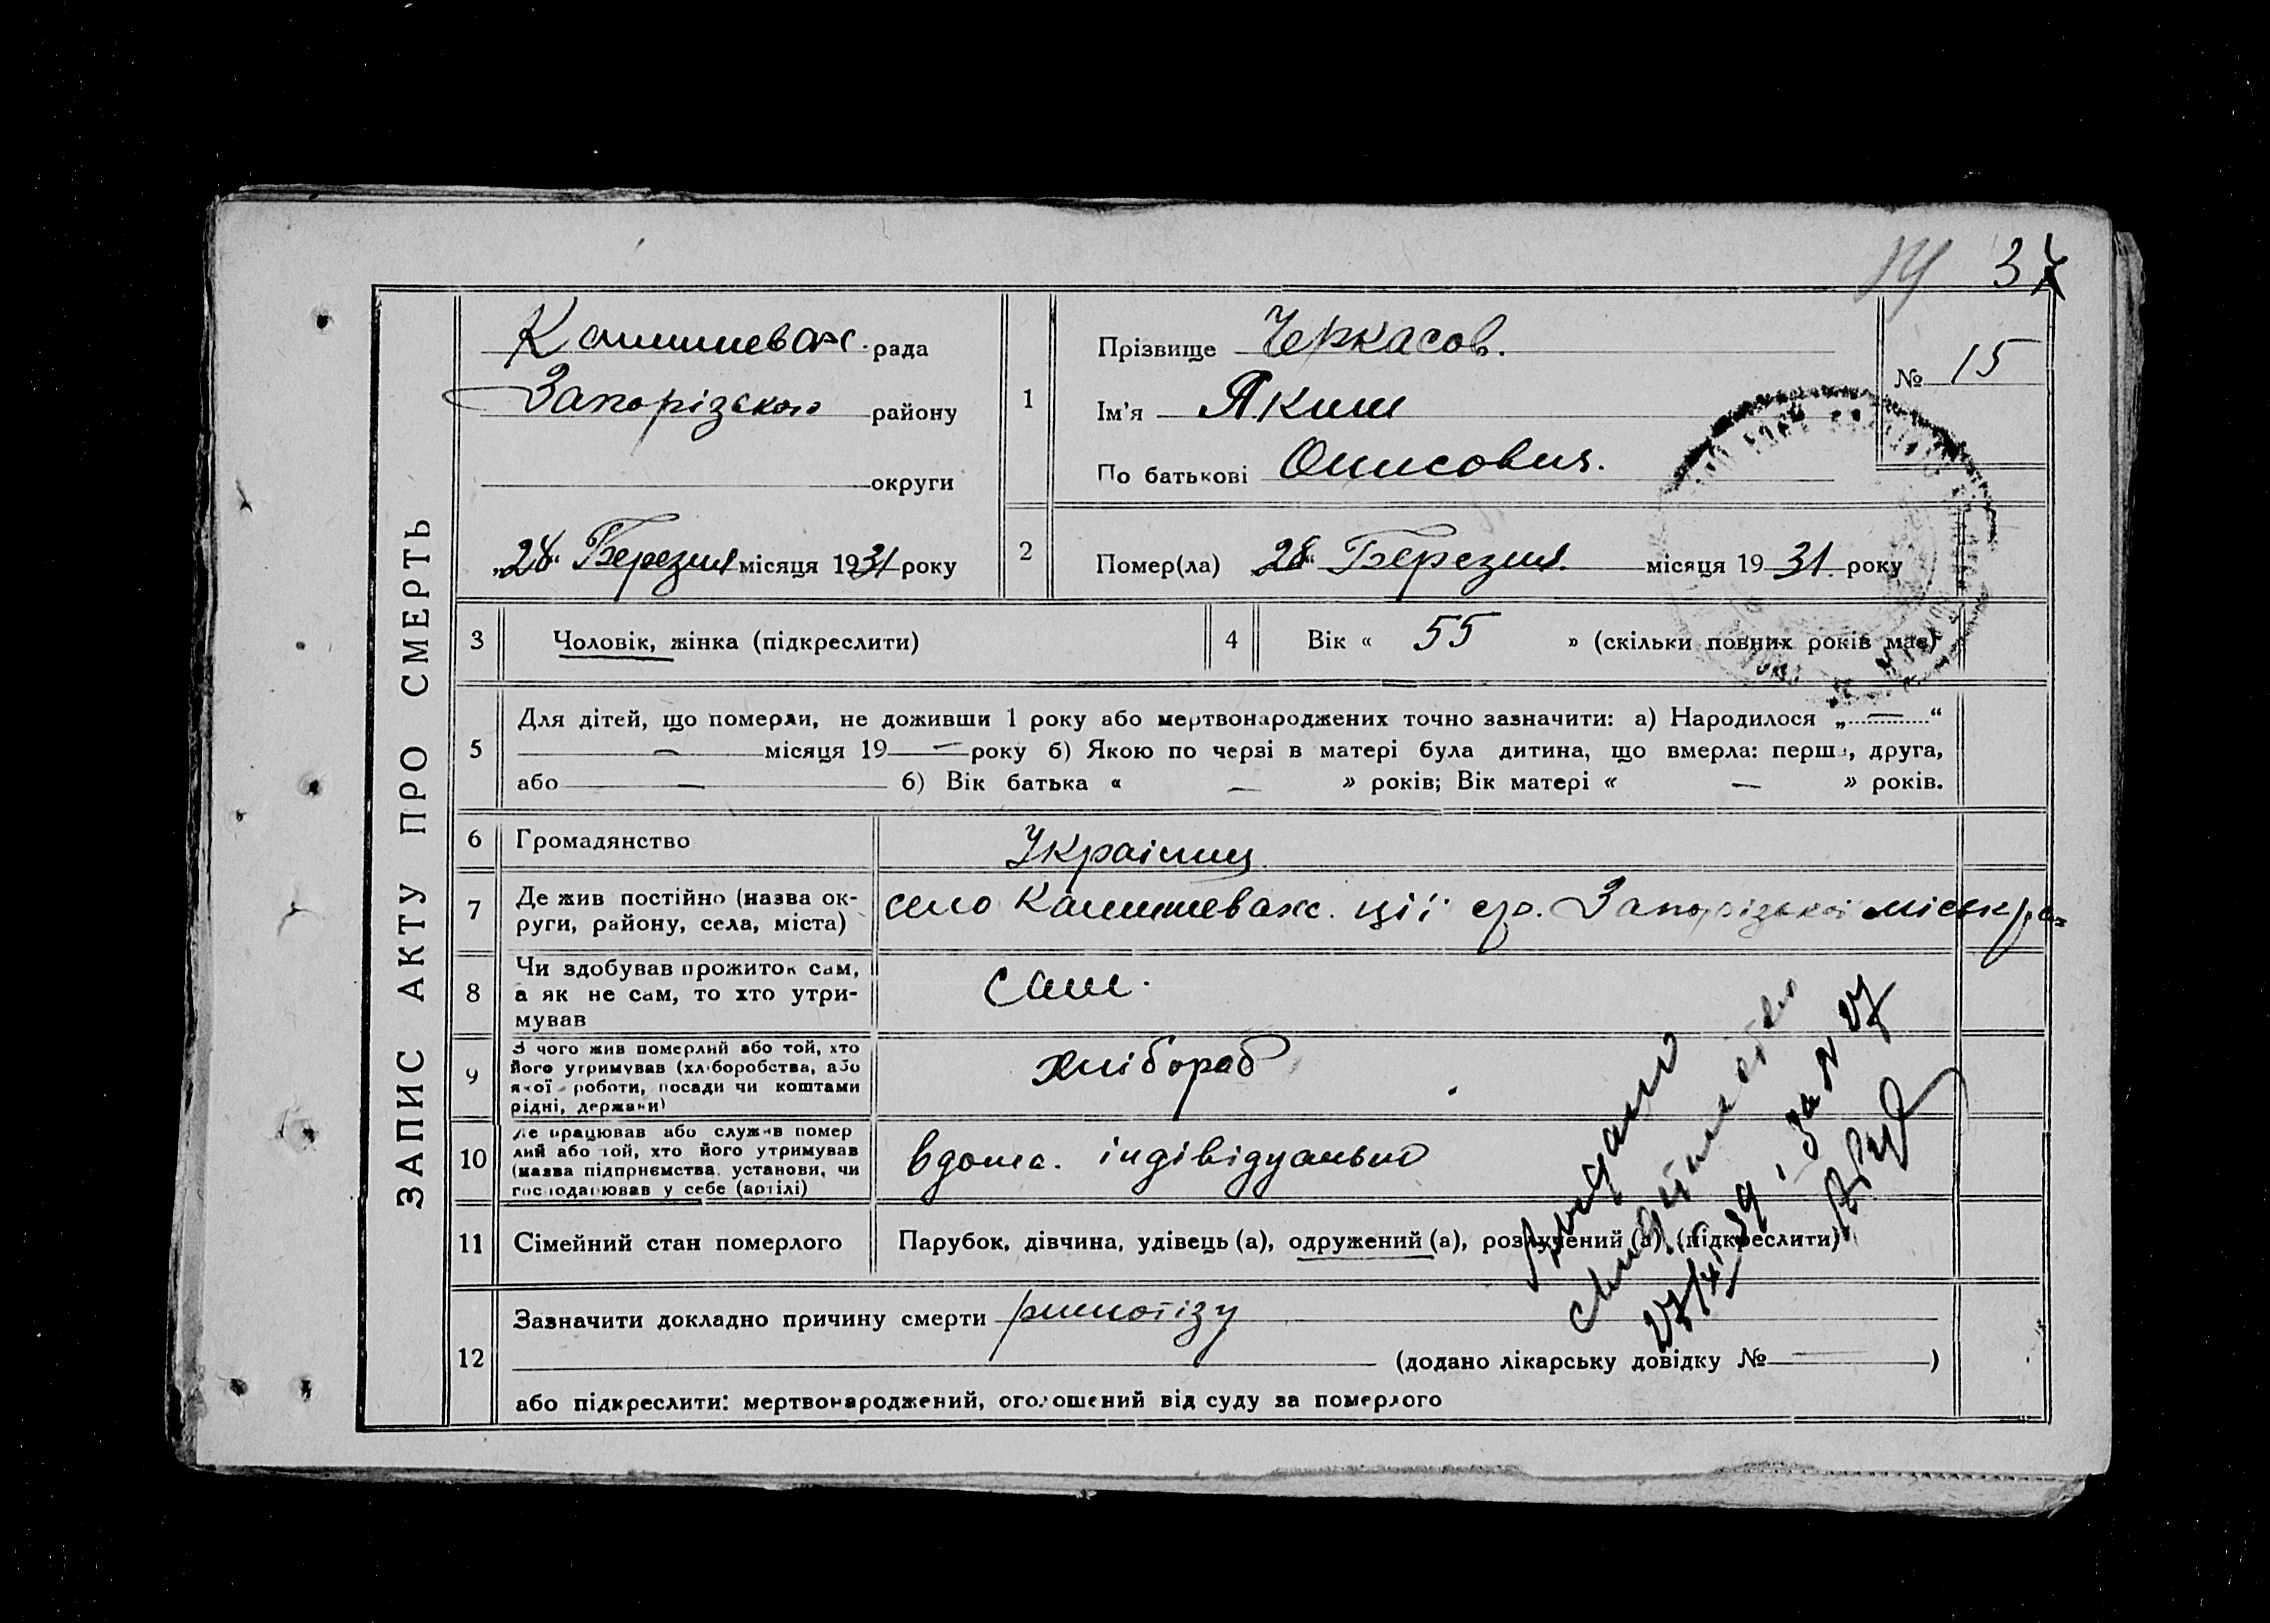 ЗАПИС АКТУ ПРО СМЕРТЬ
19 37
Камишеваж. рада
Запорізького району
округи
„28“ Березня місяця 1931 року
1
Прізвище Черкасов.
Ім'я Яким
По батькові
№ 15
2
Помер(ла) 28 Березня. місяця 19 31. року
3
Чоловік, жінка (підкреслити)
4
Вік « 55 » (скільки повних років має)
5
Для дітей, що померли, не доживши 1 року або мертвонароджених точно зазначити: а) Народилося „ — “
— місяця 19 — року б) Якою по черзі в матері була дитина, що вмерла: перша, друга,
або — 6) Вік батька « — » років; Вік матері « — » років.
6
Громадянство
Українец
7
Де жив постійно (назва ок-
руги, району, села, міста)
село Камишеваж. ції ср. Запорізької міськра-
8
Чи здобував прожиток сам,
а як не сам, то хто утри-
мував
сам.
9
З чого жив померлий або той, хто
його утримував (хліборобства, або
якої роботи, посади чи коштами
рідні, держави)
хлібороб
10
Де працював або служив помер
лий або той, хто його утримував
(назва підприємства, установи, чи
господарював у себе (артілі)
вдома. індівідуально
11
Сімейний стан померлого
Парубок, дівчина, удівець (а), одружений (а), розлучений (а) (підкреслити)
12
Зазначити докладно причину смерти
(додано лікарську довідку № — )
або підкреслити: мертвонароджений, оголошений від суду за померлого
Выдано
за № 27